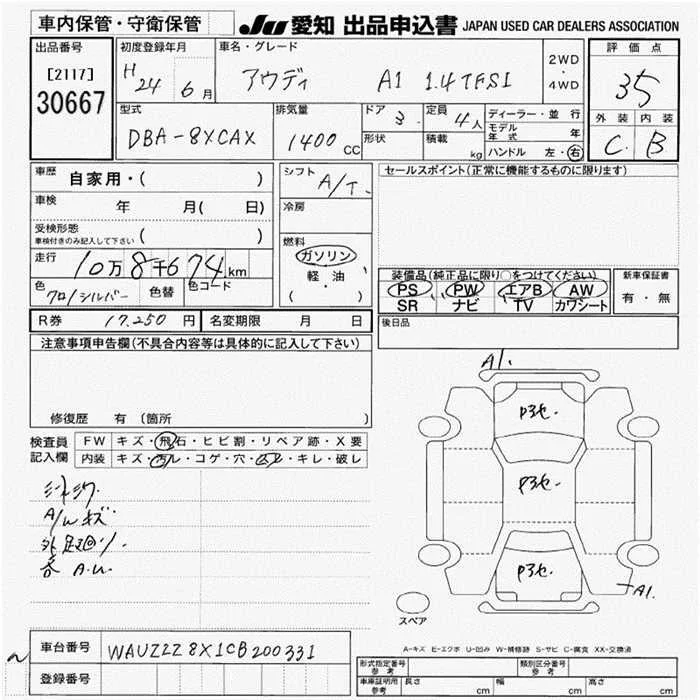 車内保管・守衛保管
JU 愛知 出品申込書 JAPAN USED CAR DEALERS ASSOCIATION
出品番号
[2117]
30667
初度登録年月
H 24 6月
車名・グレード
アウディ A1 1.4TFSI
2WD
・
4WD
評価点
35
外装 内装
C B
型式
DBA-8XCAX
排気量
1400cc
ドア 3
形状
定員 4人
積載 kg
ディーラー・並行
モデル年式 年
ハンドル 左・右
車歴 自家用・( )
車検 年 月( 日)
受検形態
車検付きのみ記入して下さい ( )
走行 10万8千674km
色 クロ/シルバー 色替 色コード
シフト A/T
冷房
燃料
ガソリン
軽・油
( )
セールスポイント(正常に機能するものに限ります)
装備品(純正品に限り○をつけてください)
PS PW エアB AW
SR ナビ TV カワシート
新車保証書
有・無
R券 17.250円 名変期限 月 日
後日品
注意事項申告欄(不具合内容等は具体的に記入して下さい)
修復歴 有(箇所 )
検査員記入欄
FW キズ・飛石・ヒビ割・リペア跡・X要
内装 キズ・汚レ・コゲ・穴・スレ・キレ・破レ
A/Wキズ
A1.
P3セ.
P3セ.
P3セ.
A1.
スペア
A-キズ E-エクボ U-凹み W-補修跡 S-サビ C-腐食 XX-交換済
車台番号 WAUZZZ8X1CB200331
登録番号
形式指定番号 参考
類別区分番号 参考
車庫証明用 参考 長さ cm 幅 cm 高さ cm